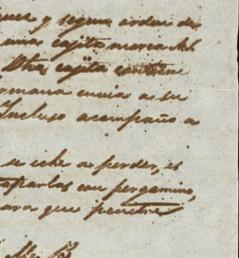 y segun orden de
una cajita marca
Otra cajita contiene
envia a su
Incluso acompaño a
se eche a perder, es
taparlas con pergamino,
para que penetre